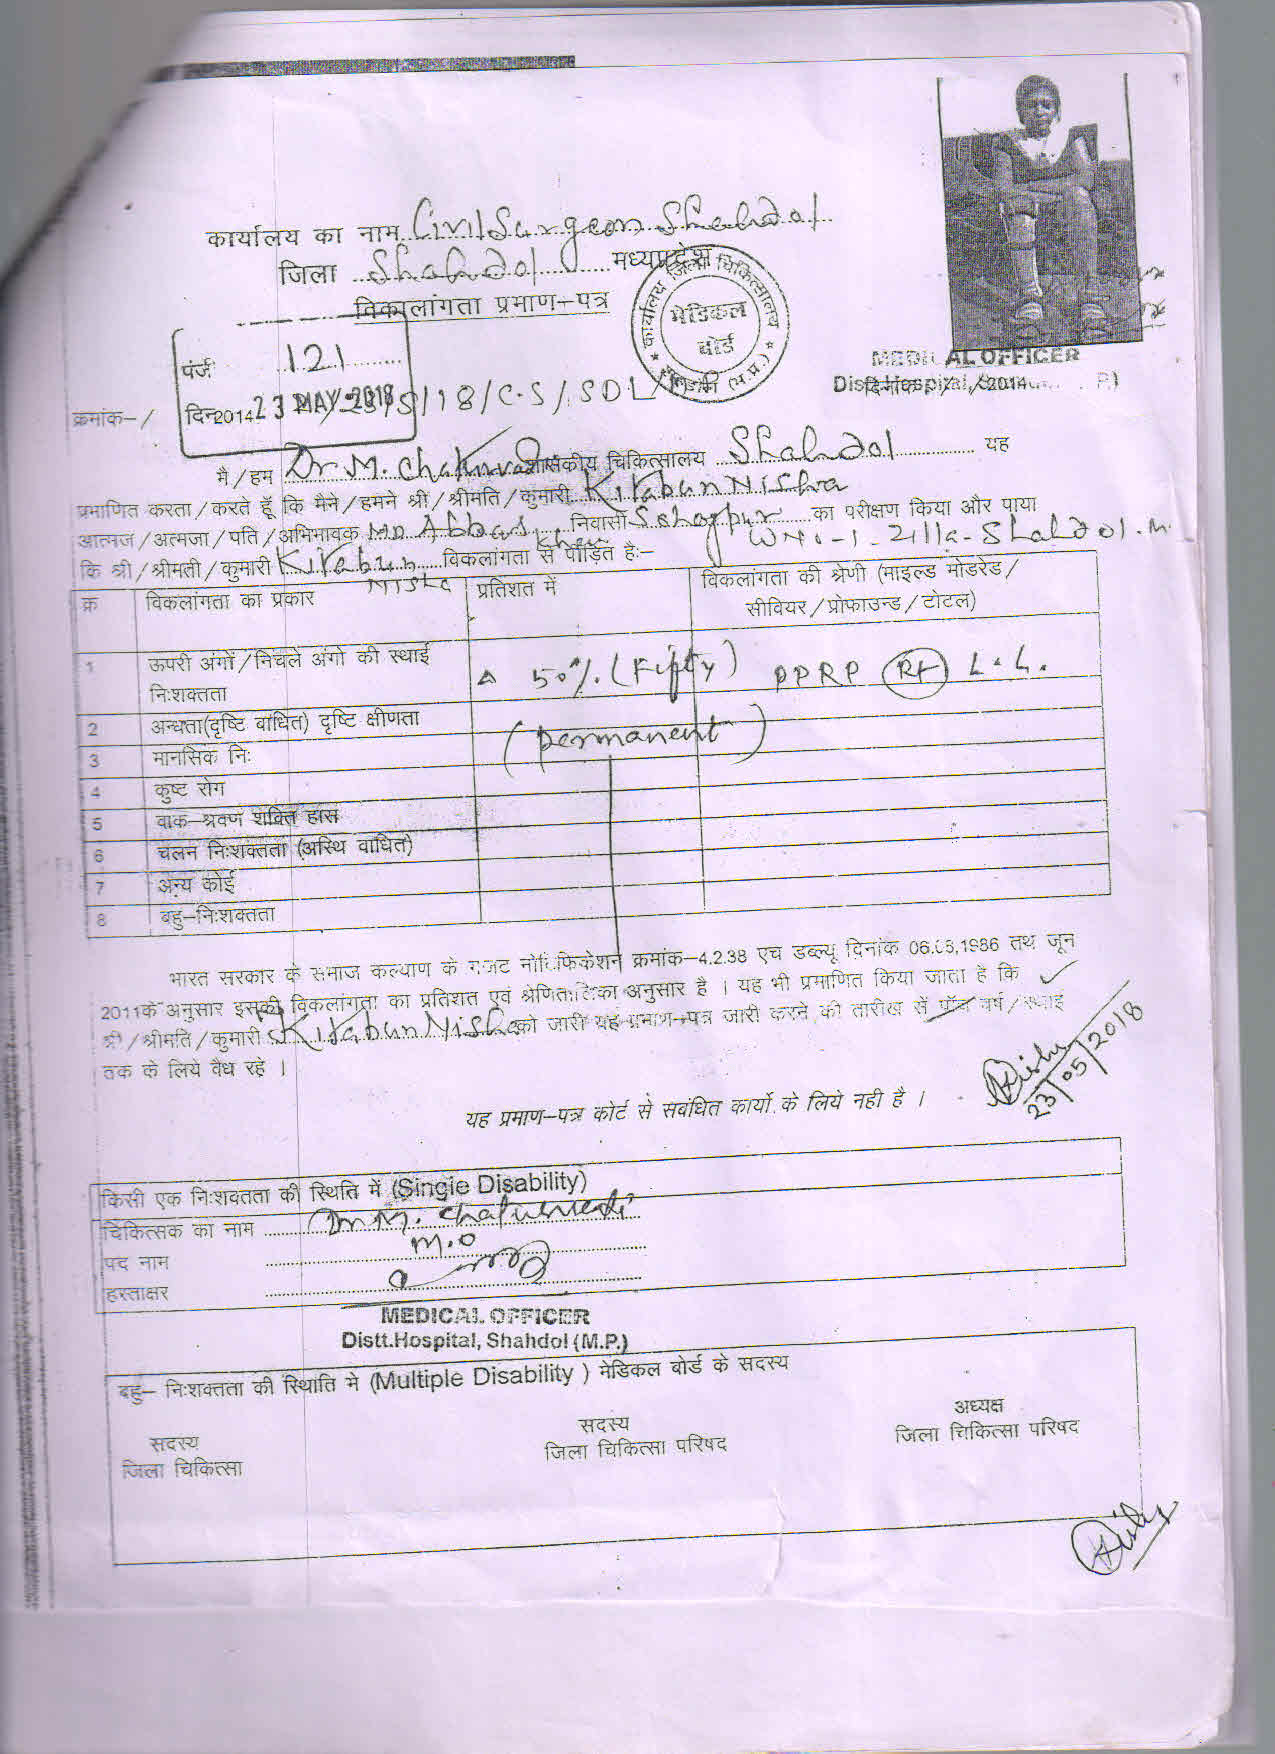 कार्यालय का नाम Civil Surgeon Shahdol
जिला Shahdol मध्यप्रदेश
विकालांगता प्रमाण–पत्र
कार्यालय जिला चिकित्सालय
मेडिकल
बोर्ड
(म.प्र.)
MEDICAL OFFICER
Hospital,
पंजी 121
दिन2014 23 MAY 2018
क्रमांक–/ /5/18/C.S/SDL/
मै/हम Dr. M. शासकीय चिकित्सालय Shahdol यह
प्रमाणित करता/करते हूँ कि मैने/हमने श्री/श्रीमति/कुमारी Kitabun Nisha
आत्मज/अत्मजा/पति/अभिभावक MD Abbas Khan निवासी Sohagpur का परीक्षण किया और पाया
W.No-1 Zilla-Shahdol.M
कि श्री/श्रीमती/कुमारी Kitabun Nisha विकलांगता से पीड़ित है:–
क्र विकलांगता का प्रकार प्रतिशत में विकलांगता की श्रेणी (माइल्ड मोडरेड/
सीवियर/प्रोफाउन्ड/टोटल)
1 ऊपरी अंगों/निचले अंगो की स्थाई
निःशक्तता 50%. (Fifty) PPRP (Rt) L.L.
2 अन्धता(दृष्टि वाधित) दृष्टि क्षीणता
(Permanent)
3 मानसिक निः
4 कुष्ट रोग
5 वाक–श्रवण शक्ति हास
6 चलन निःशक्तता (अस्थि वाधित)
7 अन्य कोई
8 बहु–निःशक्तता
भारत सरकार के समाज कल्याण के गजट नोटिफिकेशन क्रमांक–4.2.38 एच डब्ल्यू दिनांक 06.08,1986 तथ जून
2011के अनुसार इसकी विकलांगता का प्रतिशत एवं श्रेणितालिका अनुसार है । यह भी प्रमाणित किया जाता है कि
श्री/श्रीमति/कुमारी Kitabun Nisha को जारी यह प्रमाण–पत्र जारी करने की तारीख से पॉच वर्ष/स्थाई
तक के लिये वैध रहे ।
23/05/2018
यह प्रमाण–पत्र कोर्ट से सबंधित कार्यो के लिये नही है ।
किसी एक निःशक्तता की स्थिति में (Single Disability)
चिकित्सक का नाम Dr. M. Chaturvedi
पद नाम M.O
हस्ताक्षर
MEDICAL OFFICER
Distt.Hospital, Shahdol (M.P.)
बहु– निःशक्तता की स्थिाति मे (Multiple Disability ) मेडिकल बोर्ड के सदस्य
सदस्य सदस्य अध्यक्ष
जिला चिकित्सा जिला चिकित्सा परिषद जिला चिकित्सा परिषद